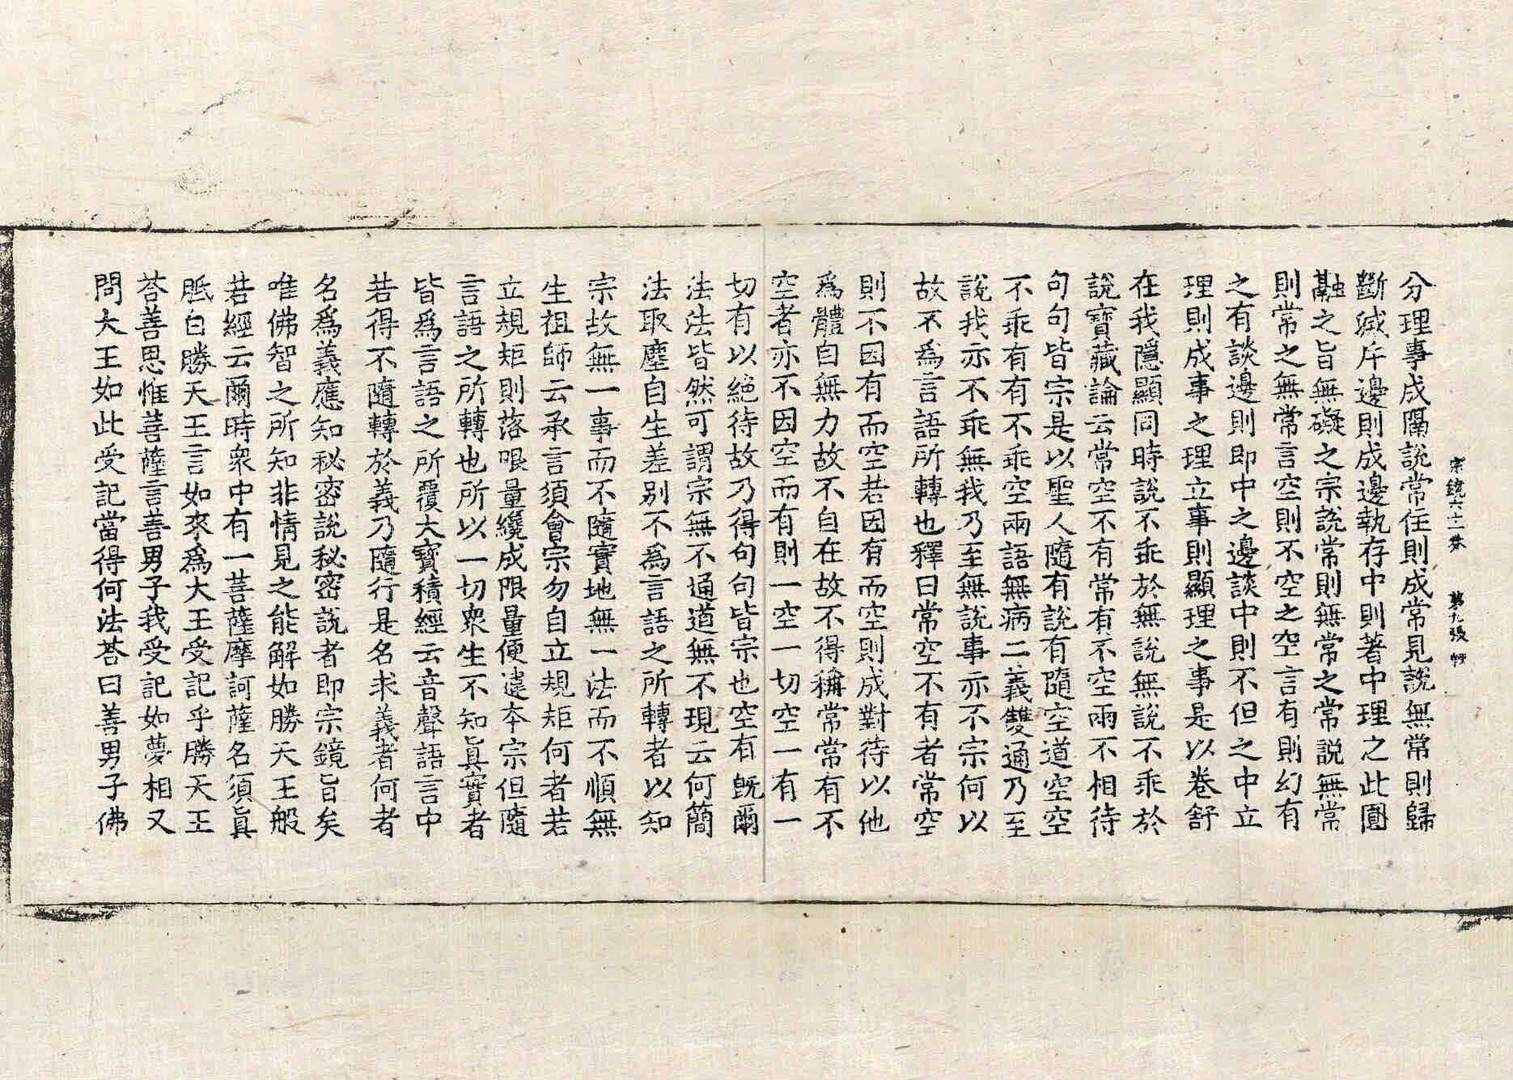 宗鏡六十二卷　第九張　㪅
分理事成隔說常住則成常見說無常則歸
斷滅斥邊則成邊執存中則著中理之此圓
融之旨無礙之宗說常則無常之常說無常
則常之無常言空則不空之空言有則幻有
之有談邊則即中之邊談中則不但之中立
理則成事之理立事則顯理之事是以卷舒
在我隱顯同時說不乖於無說無說不乖於
說寶藏論云常空不有常有不空兩不相待
句句皆宗是以聖人隨有說有隨空道空空
不乖有有不乖空兩語無病二義雙通乃至
說我亦不乖無我乃至無說事亦不宗何以
故不爲言語所轉也釋曰常空不有者常空
則不因有而空若因有而空則成對待以他
爲體自無力故不自在故不得稱常常有不
空者亦不因空而有則一空一切空一有一
切有以絕待故乃得句句皆宗也空有旣爾
法法皆然可謂宗無不通道無不現云何簡
法取塵自生差別不爲言語之所轉者以知
宗故無一事而不隨實地無一法而不順無
生祖師云承言須會宗勿自立規矩何者若
立規矩則落限量纔成限量便違本宗但隨
言語之所轉也所以一切衆生不知眞實者
皆爲言語之所覆大寶積經云音聲語言中
若得不隨轉於義乃隨行是名求義者何者
名爲義應知秘密說秘密說者即宗鏡旨矣
唯佛智之所知非情見之能解如勝天王般
若經云爾時衆中有一菩薩摩訶薩名須眞
胝白勝天王言如來爲大王受記乎勝天王
荅善思惟菩薩言善男子我受記如夢相又
問大王如此受記當得何法荅曰善男子佛